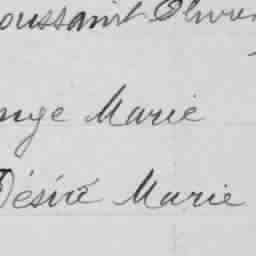 oussaint Olivie
nge Marie
Désiré Marie